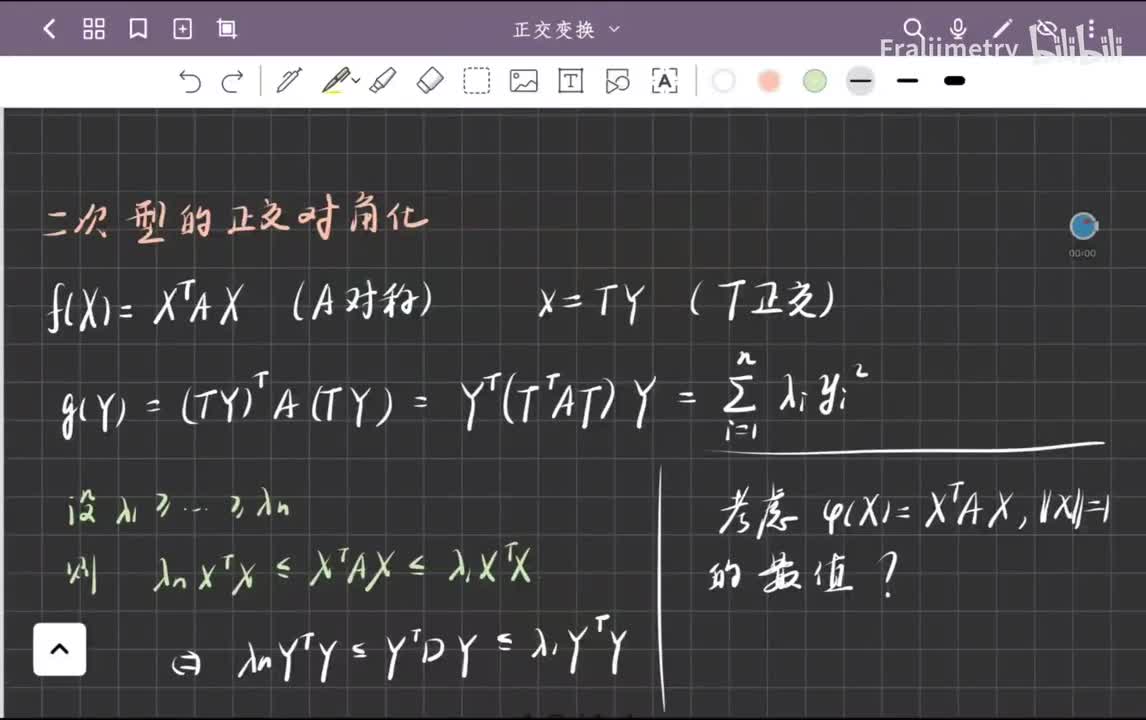 正交变换
Fraliimetry bilibili
A
00:00
二次型的正交对角化
f(X) = XᵀAX (A对称) X = TY (T正交)
g(Y) = (TY)ᵀA(TY) = Yᵀ(TᵀAT)Y = ∑ᵢ₌₁ⁿ λᵢyᵢ²
设 λ₁ ≥ … ≥ λn
则 λn XᵀX ≤ XᵀAX ≤ λ₁XᵀX
⇔ λn YᵀY ≤ YᵀDY ≤ λ₁YᵀY
考虑 φ(X) = XᵀAX, ||X||=1
的最值?